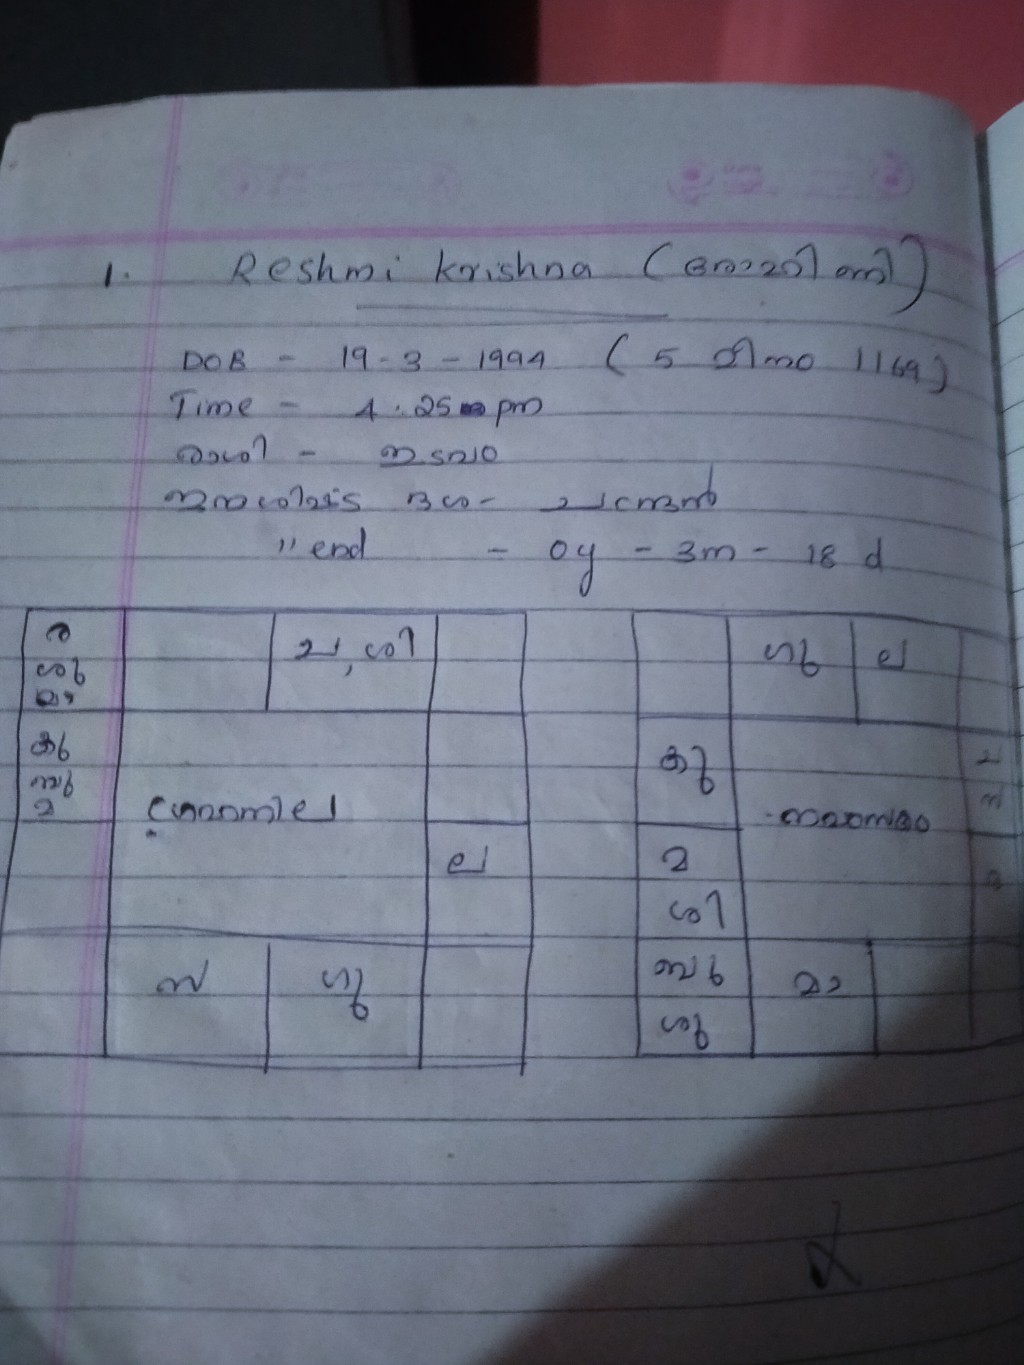 1. Reshmi Krishna (രോഹിണി)
DOB - 19-3-1994 (5 മീനം 1169)
Time - 4.25 pm
രാശി - ഇടവം
ജനശിഷ്ട ദശ - ചന്ദ്രൻ
" end - 0y - 3m - 18 d
ര ച, ശി ഗു ല
ശു
മാ
കു കു ച
ബു ഗ്രഹനില നവാംശം സ
മ
ല മ
ശി
സ ഗു ബു മാ
ശു